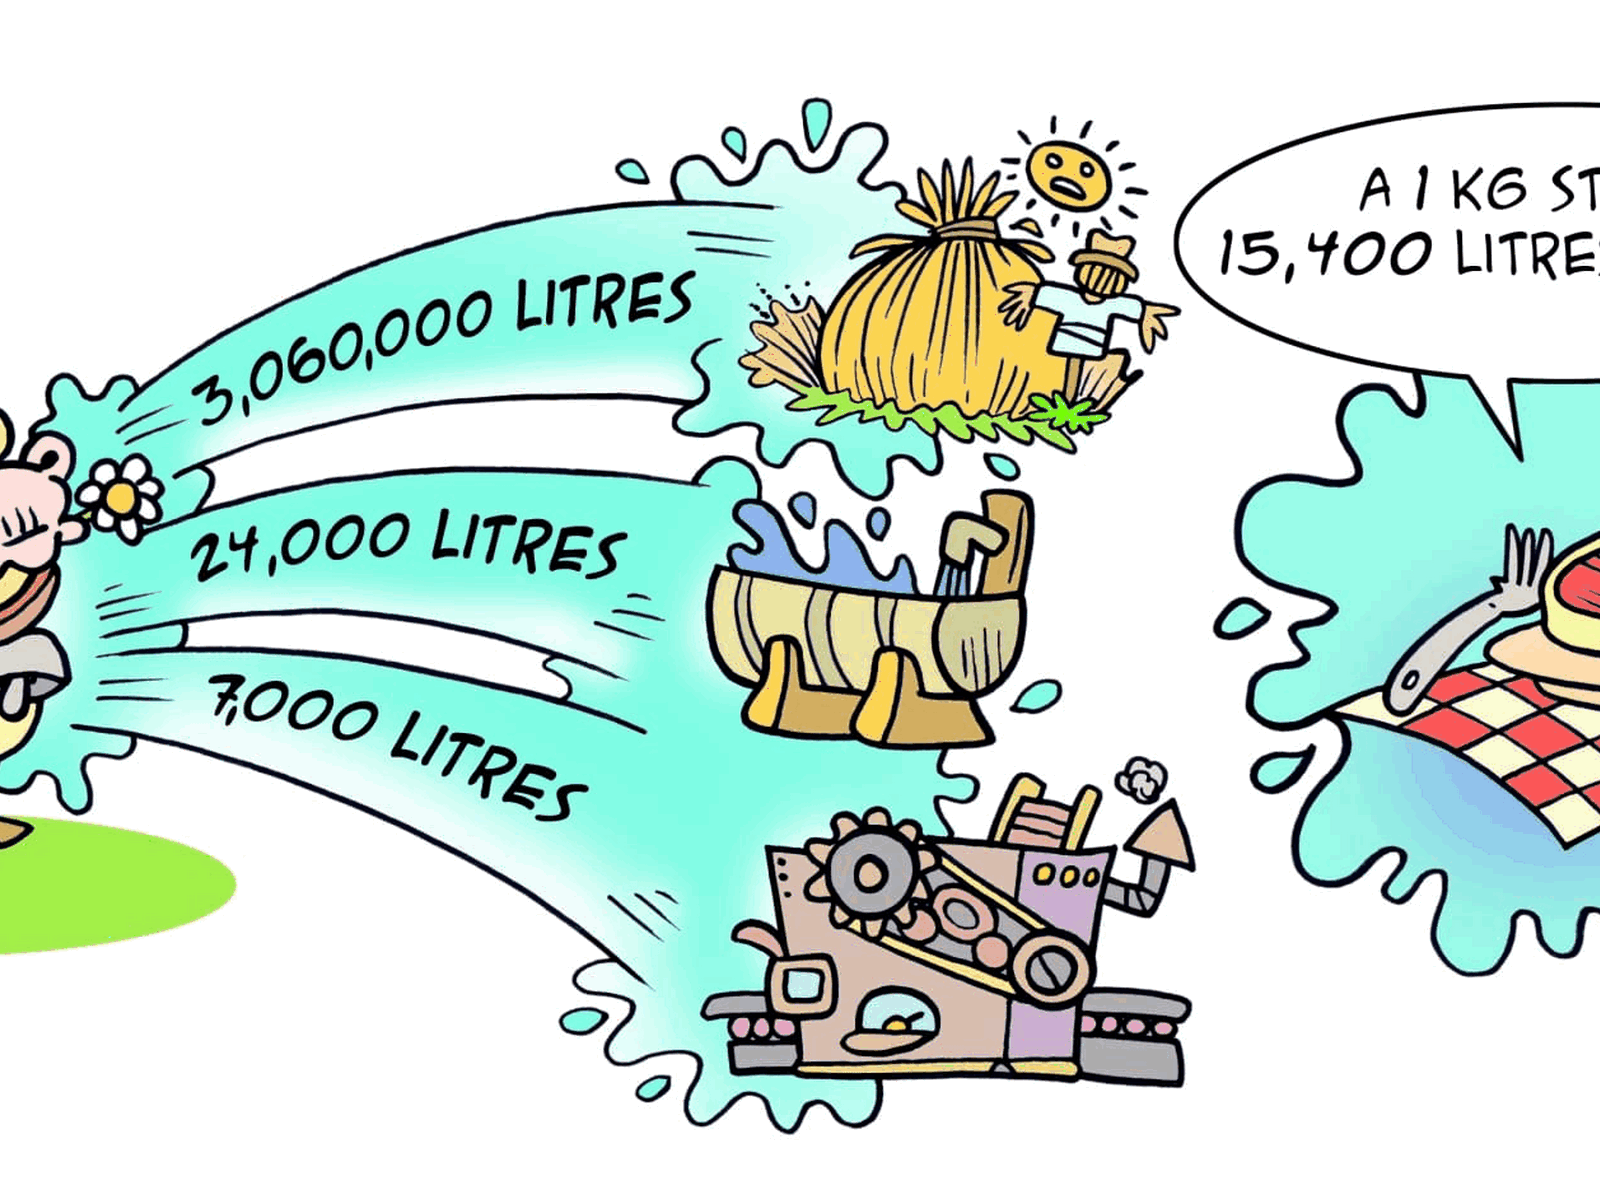 3,060,000 LITRES
24,000 LITRES
7,000 LITRES
A 1 KG ST
15,400 LITRES